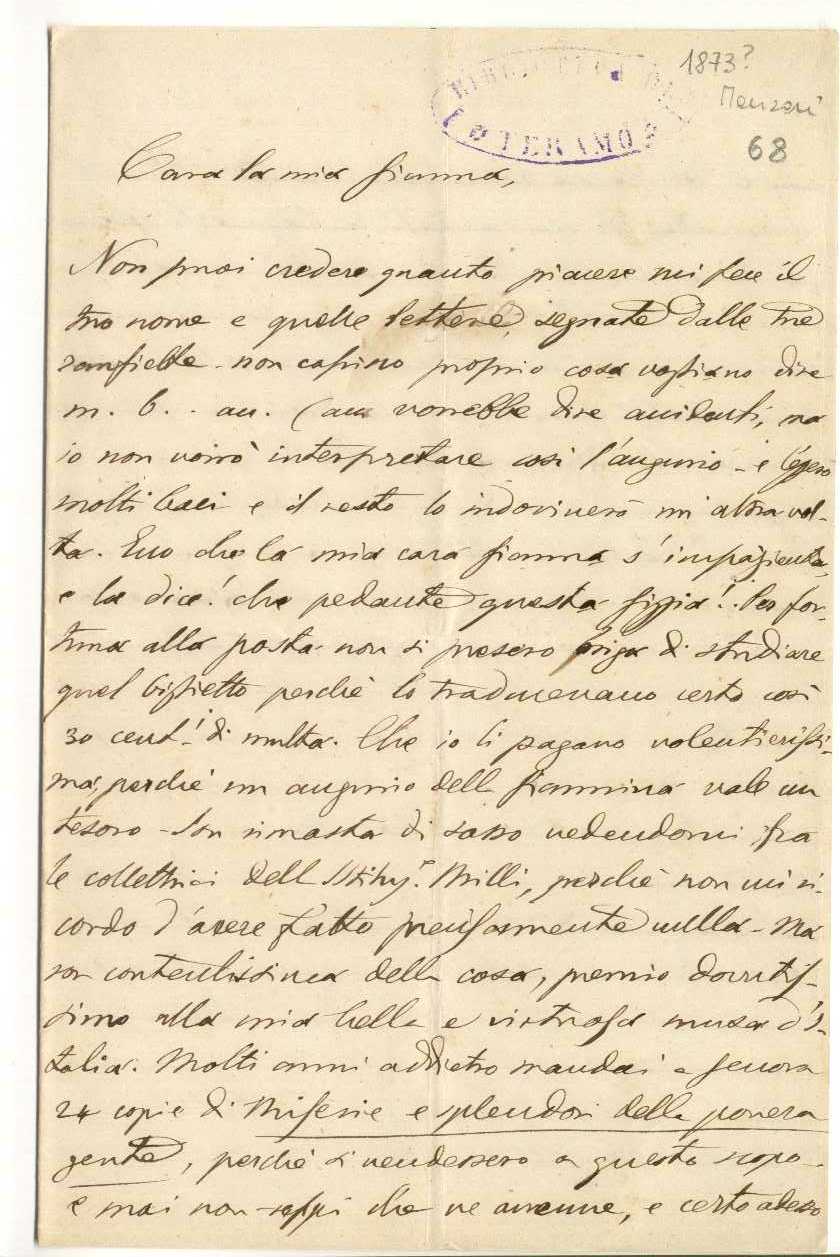 1873?
Manzoni
68
TERAMO
Cara la mia Giannina,
Non puoi credere quanto piacere mi fece il
tuo nome e quelle lettere, segnate dalle tue
zampette. non capisco proprio cosa vogliano dire
m. b. - au. (au vorrebbe dire accidenti, ma
io non vorrò interpretare così l'augurio - e leggerò
molti baci e il resto lo indovinerò un'altra vol-
ta. Ecco che la mia cara Giannina s'impazienta,
e la dice! che pedante questa Gigia! Per for-
tuna alla posta non si presero briga di studiare
quel biglietto perchè lo traducevano certo così
30 cent.i di multa. Che io li pagavo volentierissi-
ma, perchè un augurio della Giannina vale un
tesoro - Son rimasta di sasso vedendomi fra
le collettrici dell'Istit. Milli, perchè non mi ri-
cordo d'avere fatto preziosamente nulla - Ma
son contentissima della cosa, premio dovutis-
simo alla mia bella e virtuosa musa d'I-
talia. Molti anni addietro mandai a Genova
24 copie di Miserie e splendori della povera
gente, perchè si vendessero a questo scopo -
e mai non seppi che ne avvenne, e certo adesso